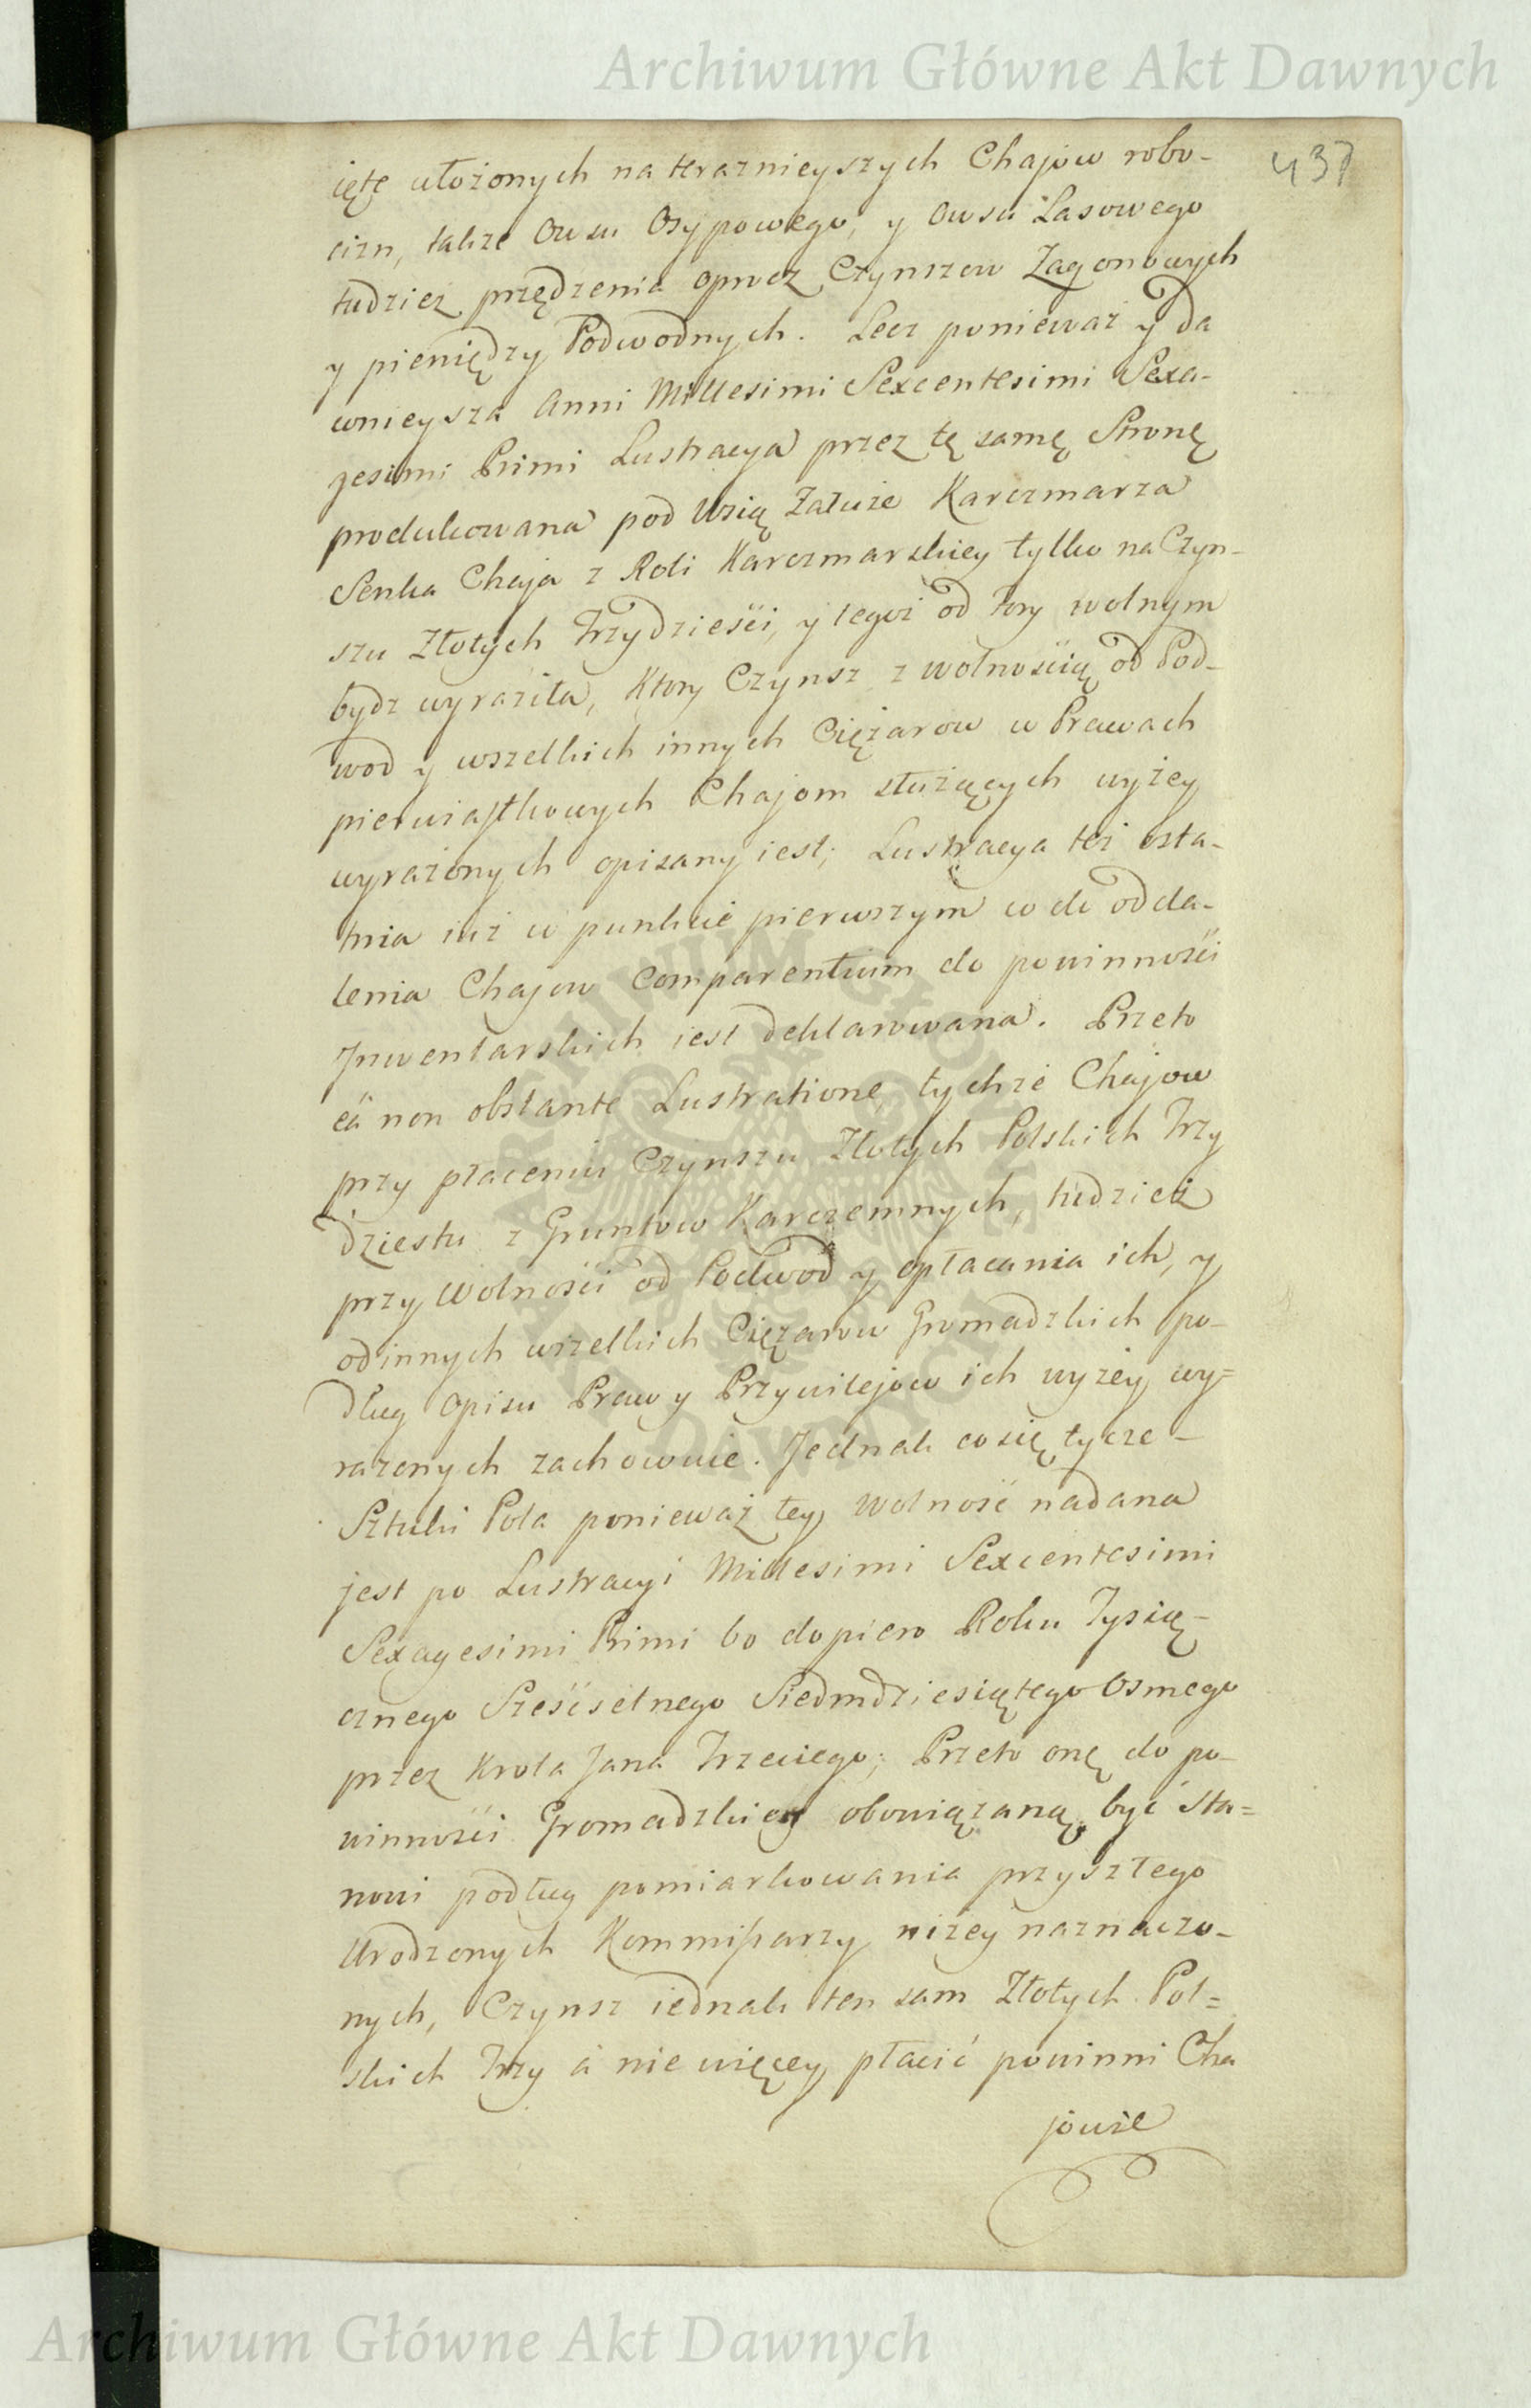 Archiwum Główne Akt Dawnych
437
ięte ułożonych na terazniejszych Chajow robo-
cizn, także Owsu Osypowego, y Owsu Lasowego
tudziez przędzenia oprocz Czynszow Zagonowych
y pieniędzy Podwodnych. Lecz ponieważ y da
wnieysza Anni Millesimi Sexcentesimi Sexa-
gesimi Primi Lustracya przez tę samę Stronę
produkowana pod Wsią Załuże Karczmarza
Senka Chaja z Roli Karczmarskiey tylko na Czyn-
szu Złotych Trzydzieści, y tegoż od Fory wolnym
bydz wyraziła, Ktory Czynsz z wolnością od Pod-
wod y wszelkich innych Ciężarow w Prawach
pierwiastkowych Chajom służących wyżey
wyrażonych opisany iest; Lustracya też osta-
tnia iuż w punkcie pierwszym co do odda-
lenia Chajow Comparentium do powinności
Inwentarskich iest deklarowana. Przeto
eâ non obstante Lustratione, tychże Chajow
przy płaceniu Czynszu Złotych Polskich Trzy
dziestu z Gruntow Karczemnych, tudzież
przy Wolności od Podwod y opłacania ich, y
od innych wszelkich Ciężarow Gromadzkich po-
dług Opisu Praw y Przywilejow ich wyżey wy=
rażonych zachowuie. Jednak co się tycze-
Sztuki Pola ponieważ tey Wolność nadana
jest po Lustracyi Millesimi Sexcentesimi
Sexagesimi Primi bo dopiero Roku Tysią-
cznego Sześćsetnego Siedmdziesiątego Osmego
przez Krola Jana Trzeciego; Przeto onę do po-
winności Gromadzkiey obowiązaną być sta=
nowi podług pomiarkowania przyszłego
Urodzonych Kommissarzy niżey naznaczo-
nych, Czynsz iednak ten sam Złotych Pol=
skich Trzy á nie więcey płacić powinni Cha
jowie
Archiwum Główne Akt Dawnych